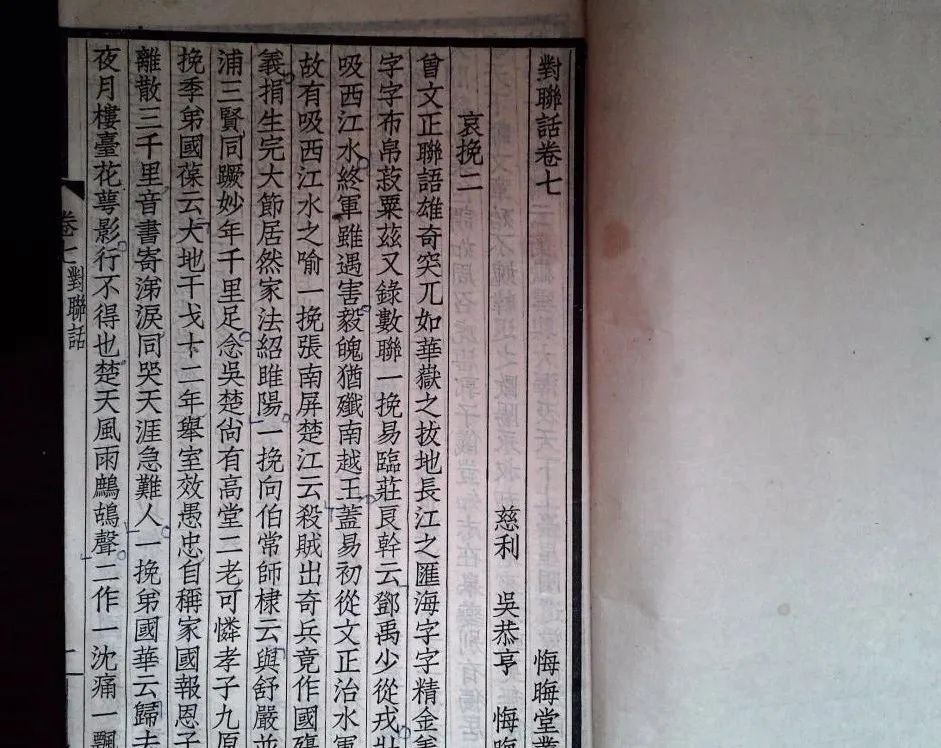 對聯話卷七 悔晦堂叢
慈利 吳恭亨 悔晦
哀挽二
曾文正聯語雄奇突兀如華嶽之拔地長江之匯海字字精金美
字字布帛菽粟茲又錄數聯一挽易臨莊良幹云鄧禹少從戎壯
吸西江水終軍雖遇害毅魄猶殲南越王蓋易初從文正治水軍
故有吸西江水之喻一挽張南屏楚江云殺賊出奇兵竟作國殤
義捐生完大節居然家法紹睢陽一挽向伯常師棣云與舒嚴並
浦三賢同蹶妙年千里足念吳楚尙有高堂二老可憐孝子九原
挽季弟國葆云大地干戈十二年舉室效愚忠自稱家國報恩子
離散三千里音書寄涕淚同哭天涯急難人一挽弟國華云歸去
夜月樓臺花萼影行不得也楚天風雨鷓鴣聲二作一沈痛一飄
卷七 對聯話 一